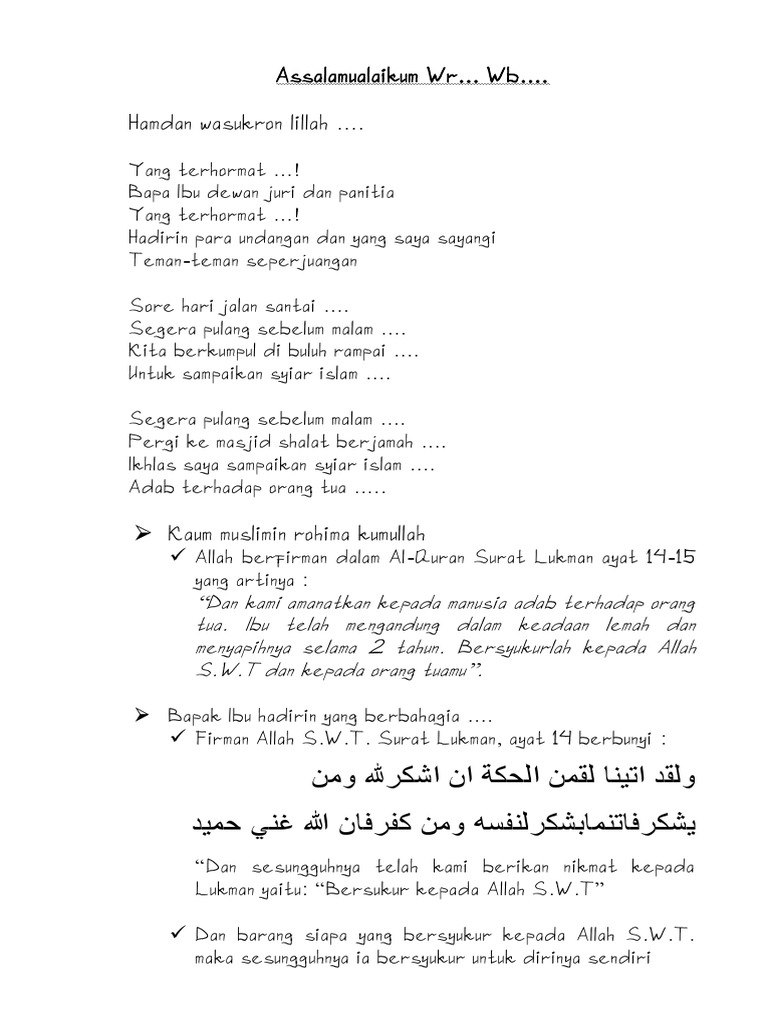 Assalamualaikum Wr... Wb....
Hamdan wasukron lillah ....
Yang terhormat ...!
Bapa Ibu dewan juri dan panitia
Yang terhormat ...!
Hadirin para undangan dan yang saya sayangi
Teman-teman seperjuangan
Sore hari jalan santai ....
Segera pulang sebelum malam ....
Kita berkumpul di buluh rampai ....
Untuk sampaikan syiar islam ....
Segera pulang sebelum malam ....
Pergi ke masjid shalat berjamah ....
Ikhlas saya sampaikan syiar islam ....
Adab terhadap orang tua .....
➢ Kaum muslimin rohima kumullah
✓ Allah berfirman dalam Al-Quran Surat Lukman ayat 14-15
yang artinya :
“Dan kami amanatkan kepada manusia adab terhadap orang
tua. Ibu telah mengandung dalam keadaan lemah dan
menyapihnya selama 2 tahun. Bersyukurlah kepada Allah
S.W.T dan kepada orang tuamu”.
➢ Bapak Ibu hadirin yang berbahagia ....
✓ Firman Allah S.W.T. Surat Lukman, ayat 14 berbunyi :
ولقد اتينا لقمن الحكة ان اشكرلله ومن
يشكرفاتنمابشكرلنفسه ومن كفرفان الله غني حميد
“Dan sesungguhnya telah kami berikan nikmat kepada
Lukman yaitu: “Bersukur kepada Allah S.W.T”
✓ Dan barang siapa yang bersyukur kepada Allah S.W.T.
maka sesungguhnya ia bersyukur untuk dirinya sendiri